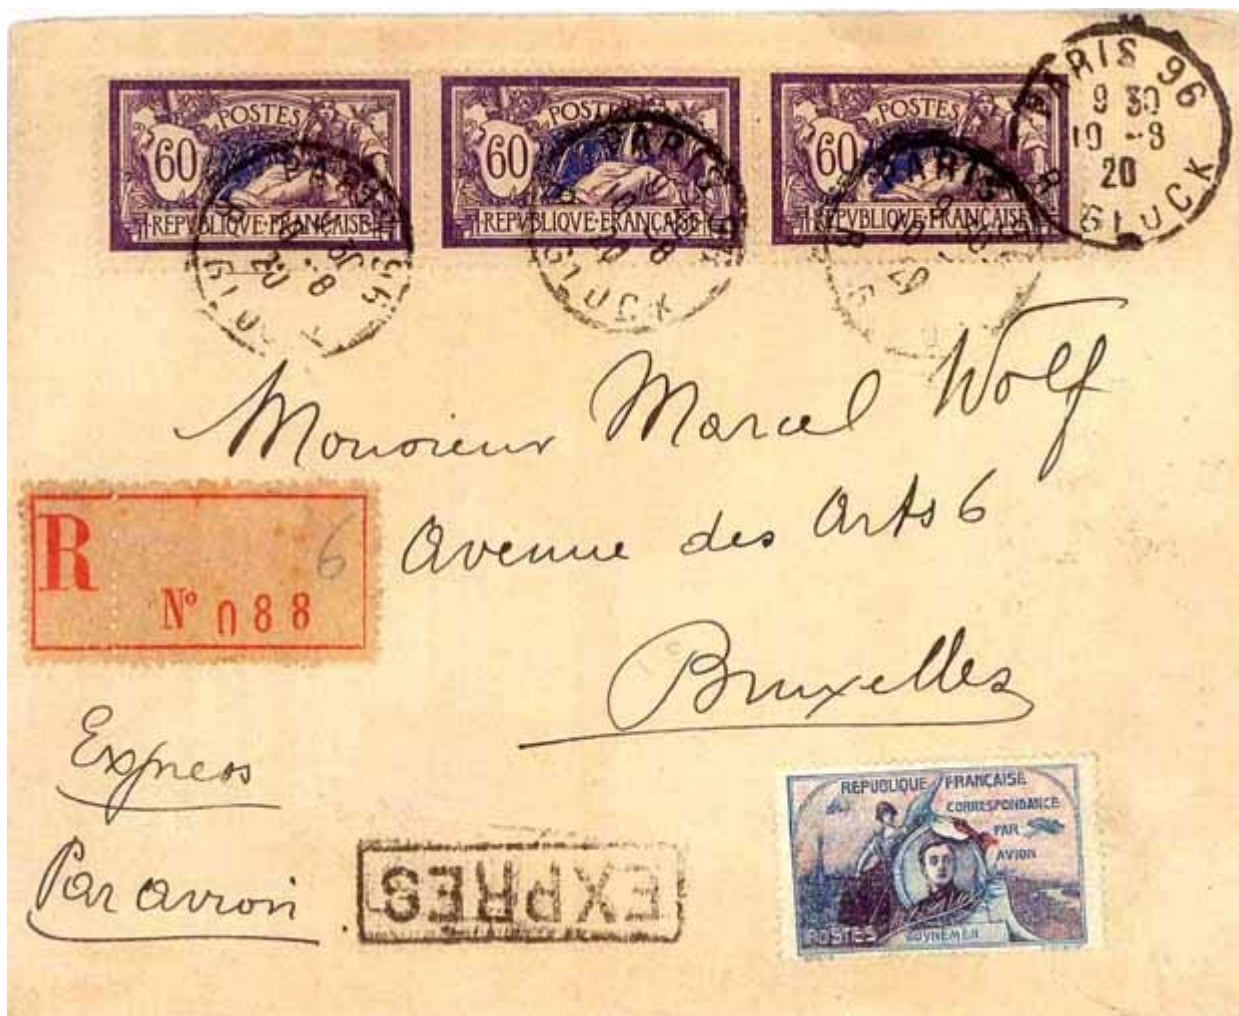 POSTES
60
REPVBLIQVE·FRANÇAISE
POSTES
60
REPVBLIQVE·FRANÇAISE
POSTES
60
REPVBLIQVE·FRANÇAISE
PARIS 96
9 30
10 -8
20
R. GLUCK
Monsieur Marcel Wolf
Avenue des Arts 6
Bruxelles
R
6
Nº 088
Express
Par avion
EXPRES
REPUBLIQUE FRANÇAISE
CORRESPONDANCE
PAR
AVION
POSTES
GUYNEMER